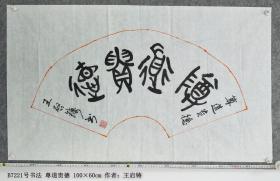 尊道貴德
尊道貴德
王启铸书
B7221号书法 尊道贵德 100×60cm 作者：王启铸